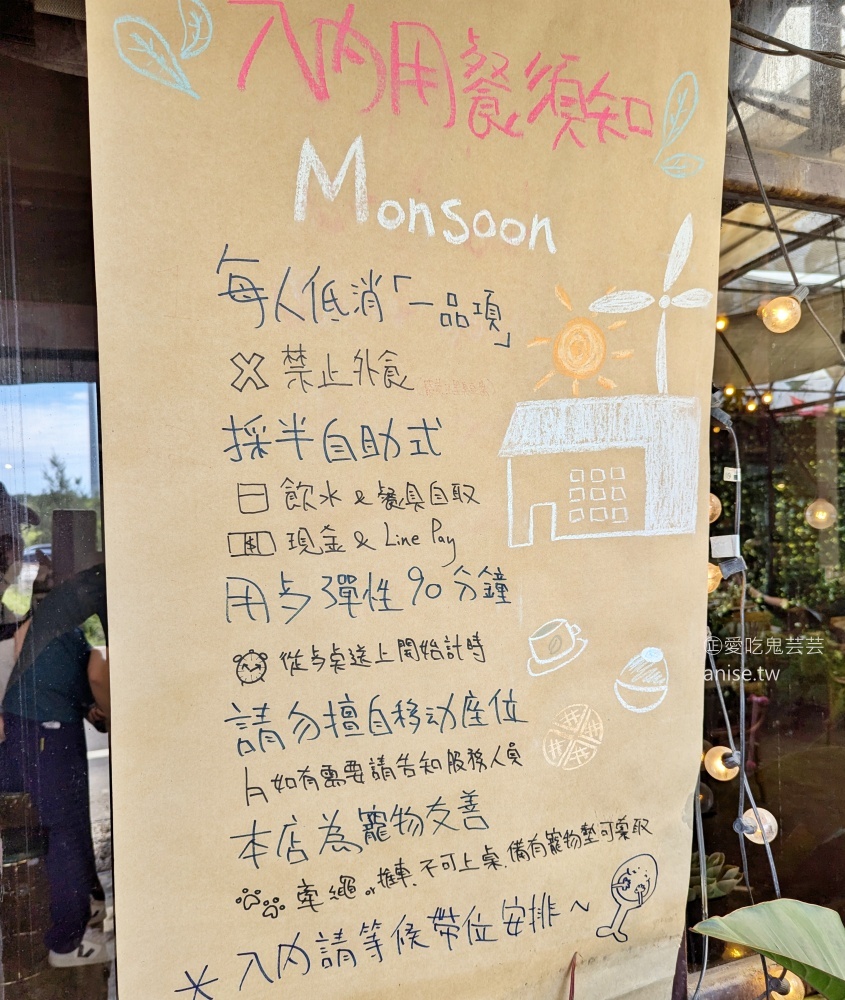 入內用餐須知
Monsoon
每人低消「一品項」
禁止外食
採半自助式
飲水 & 餐具自取
現金 & Line Pay
用歺彈性 90 分鐘
從歺桌送上開始計時
請勿擅自移动座位
如有需要請告知服務人員
本店為寵物友善
牽繩 or 推車.不可上桌.備有寵物墊可索取
* 入內請等候帶位安排~
愛吃鬼芸芸
anise.tw